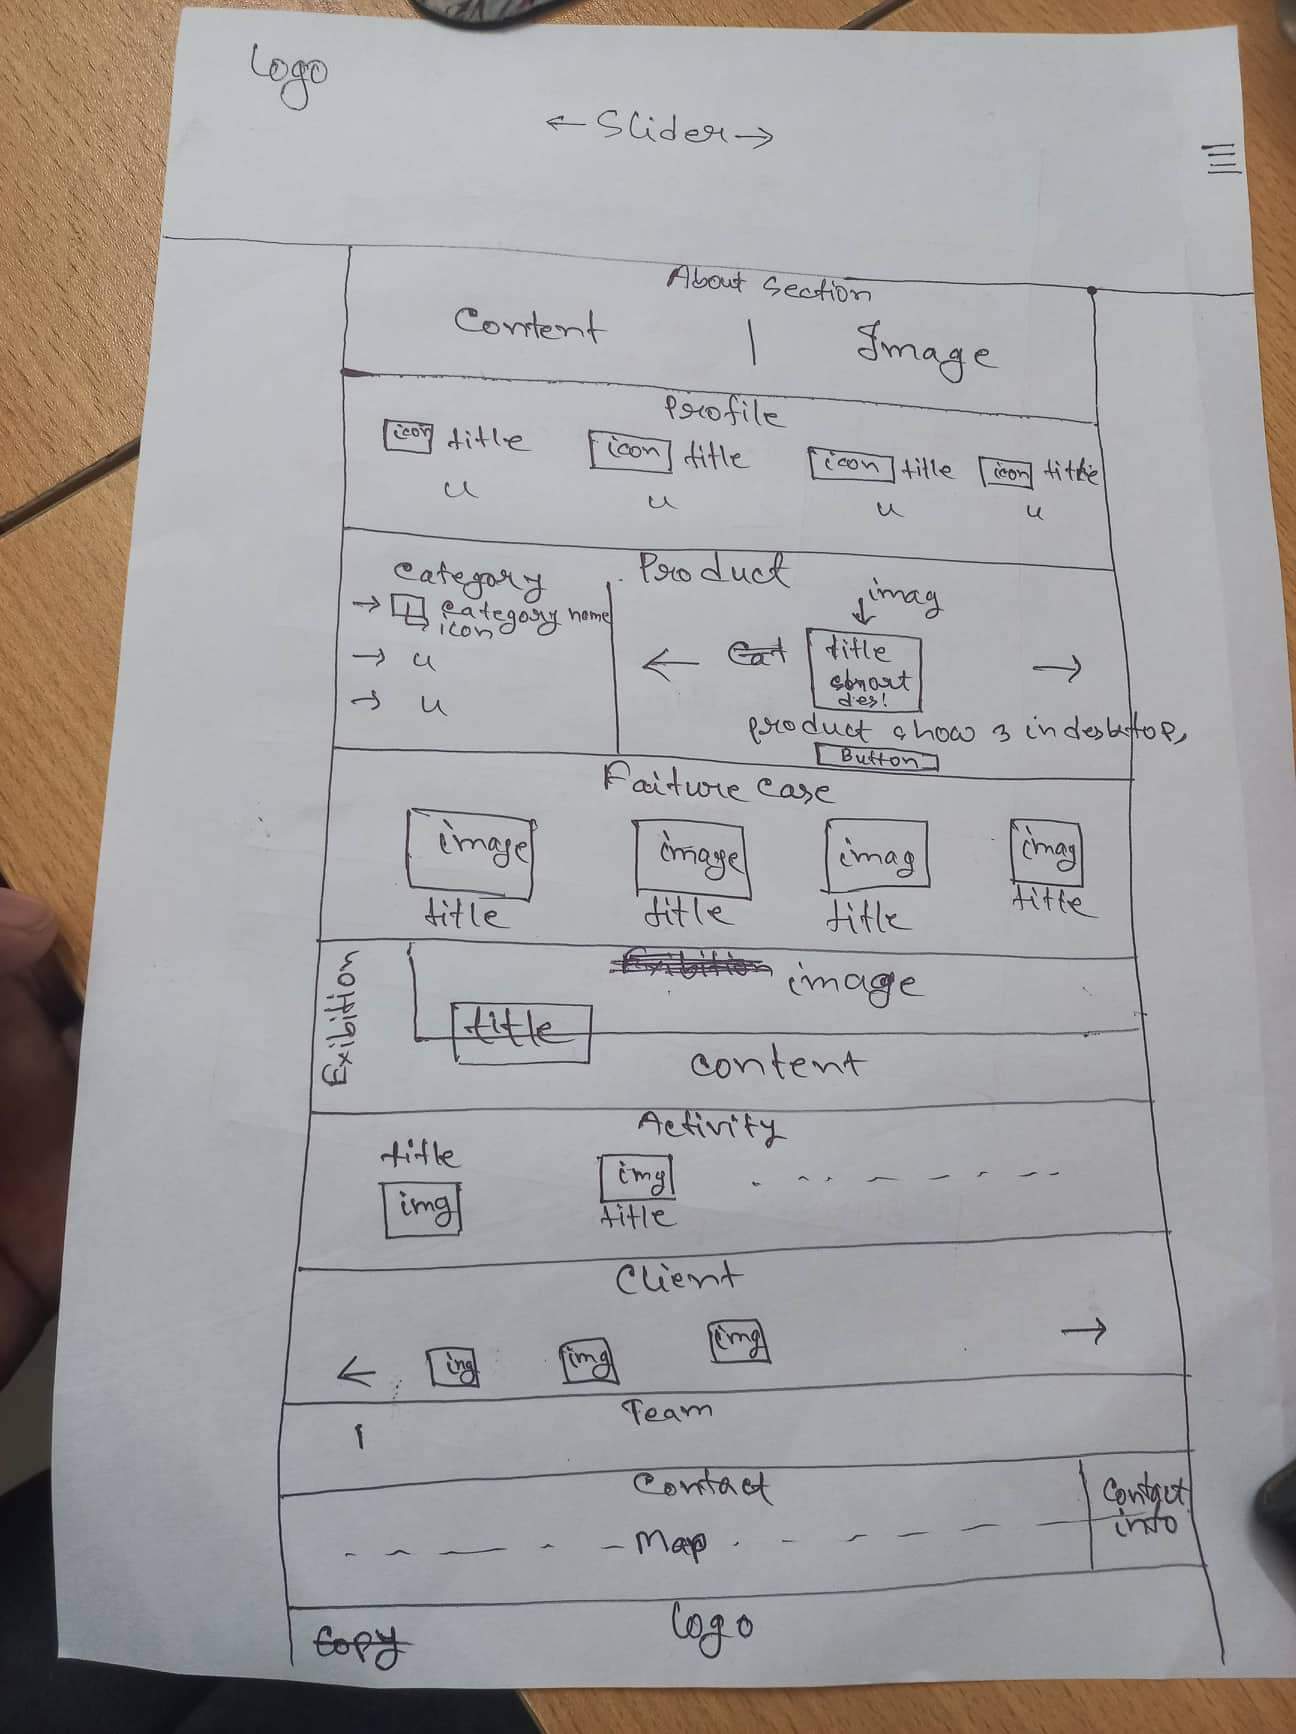 Logo
← Slider →
About Section
Content | Image
Profile
icon title icon title icon title icon title
u u u u
Category
→ category name
icon
→ u
→ u
Product
imag
← Cat title →
shoart
des!
product show 3 in desktop,
Button
Faiture Case
image image imag imag
title title title title
Exibition
Exibition image
title
content
Activity
title
img
img
title
Client
← img img img →
Team
Contact
Map
Contact
info
Copy
logo